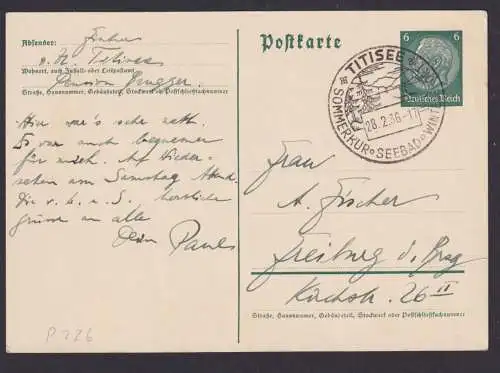 Absender: Fischer
z. Zt. Titisee
Wohnort, auch Zustell- oder Leitpostamt
Pension Brugger
Straße, Hausnummer, Gebäudeteil, Stockwerk od. Postschließfachnummer
Hier war's sehr nett.
Es war auch bequemer
für mich. Auf Wieder-
sehen am Samstag Abend.
Die v. b. u. S. herzliche
Grüsse an alle
Dein Paul
P 226
Postkarte
6 6
Deutsches Reich
TITISEE
28.2.36-17
SOMMERKUR SEEBAD WINTER
Frau
A. Fischer
Freiburg i. Brsg
Kirchstr. 26 II
Straße, Hausnummer, Gebäudeteil, Stockwerk oder Postschließfachnummer